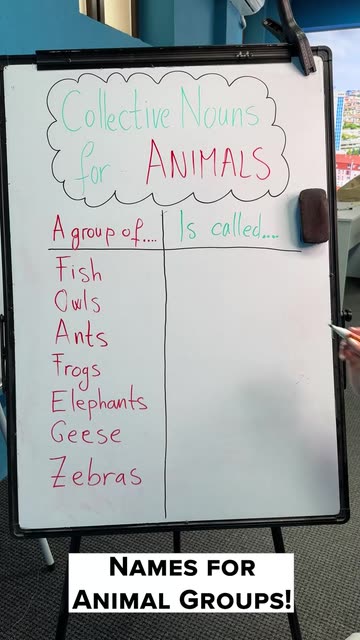 Collective Nouns
for ANIMALS
A group of.... Is called....
Fish
Owls
Ants
Frogs
Elephants
Geese
Zebras
NAMES FOR
ANIMAL GROUPS!